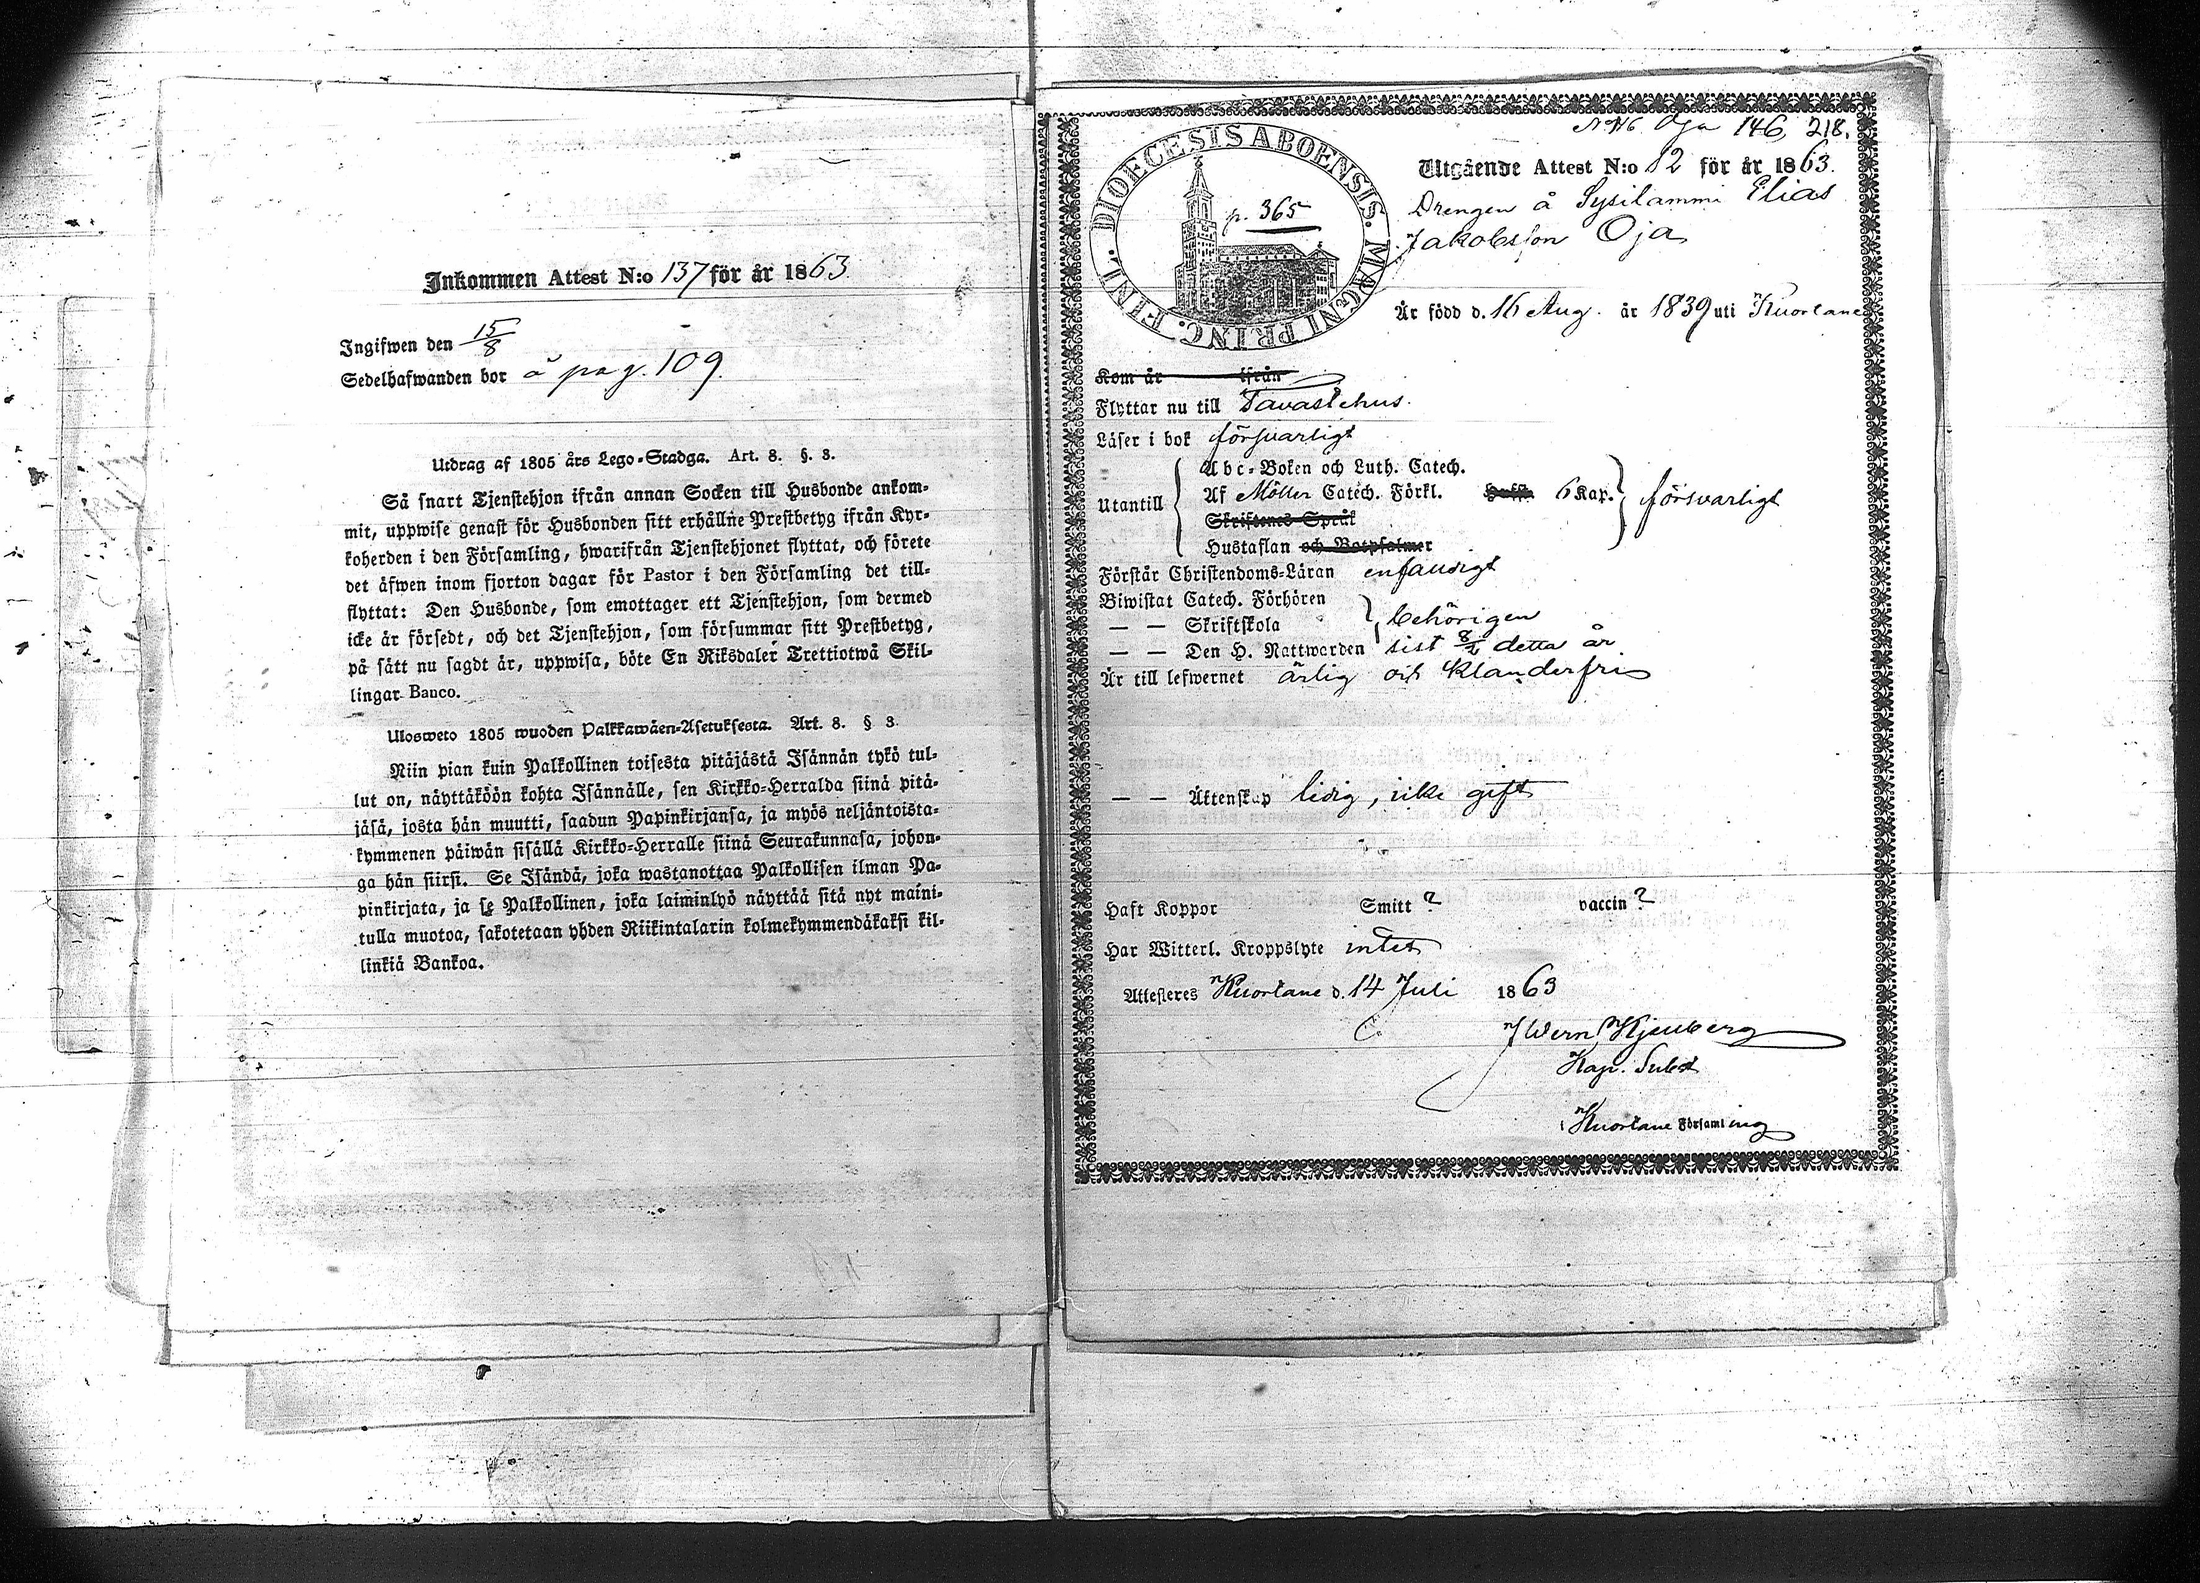 Inkommen Attest N:o 137 för år 1863
Ingifwen den 15/8
Sedelhafwanden bor å pag. 109.
Utdrag af 1805 års Lego-Stadga. Art. 8. §. 3.
Så snart Tjenstehjon ifrån annan Socken till Husbonde ankom-
mit, uppwise genast för Husbonden sitt erhållne Prestbetyg ifrån Kyr-
koherden i den Församling, hwarifrån Tjenstehjonet flyttat, och förete
det äfwen inom fjorton dagar för Pastor i den Församling det till-
flyttat: Den Husbonde, som emottager ett Tjenstehjon, som dermed
icke är försedt, och det Tjenstehjon, som försummar sitt Prestbetyg,
på sätt nu sagdt är, uppwisa, böte En Riksdaler Trettiotwå Skil-
lingar Banco.
Ulosweto 1805 wuoden Palkkawäen-Asetuksesta. Art. 8. § 3.
Niin pian kuin Palkollinen toisesta pitäjästä Isännän tykö tul-
lut on, näyttäköön kohta Isännälle, sen Kirkko-Herralda siinä pitä-
jäsä, josta hän muutti, saadun Papinkirjansa, ja myös neljäntoista-
kymmenen päiwän sisällä Kirkko-Herralle siinä Seurakunnasa, johon-
ga hän siirsi. Se Isändä, joka wastanottaa Palkollisen ilman Pa-
pinkirjata, ja se Palkollinen, joka laiminlyö näyttää sitä nyt maini-
tulla muotoa, sakotetaan yhden Riikintalarin kolmekymmendäkaksi kil-
linkiä Bankoa.
Oja 146, 218.
DIOECESIS ABOENSIS. MAGNI PRINC. FINL.
p. 365
Utgående Attest N:o 82 för år 1863.
Drengen å Sysilammi Elias
Jakobsson Oja
Är född d. 16 Aug. år 1839 uti Kuortane
Kom år ifrån
Flyttar nu till Tavastehus.
Läser i bok försvarligt
Abc-Boken och Luth. Catech.
Utantill Af Möller Catech. Förkl. 6 Kap. försvarligt
Skriftenes Språk
Hustaflan och Botpsalmer
Förstår Christendoms-Läran enfaldigt
Biwistat Catech. Förhören
— — Skriftskola behörigen
— — Den H. Nattwarden sist 8/2 detta år
Är till lefwernet ärlig och klanderfri
— — Äktenskap ledig, icke gift
Haft Koppor Smitt ? vaccin ?
Har Witterl. Kroppslyte intet
Attesteres Kuortane d. 14 Juli 1863
J Wern Kjenberg
Kap. Subst
i Kuortane Församling